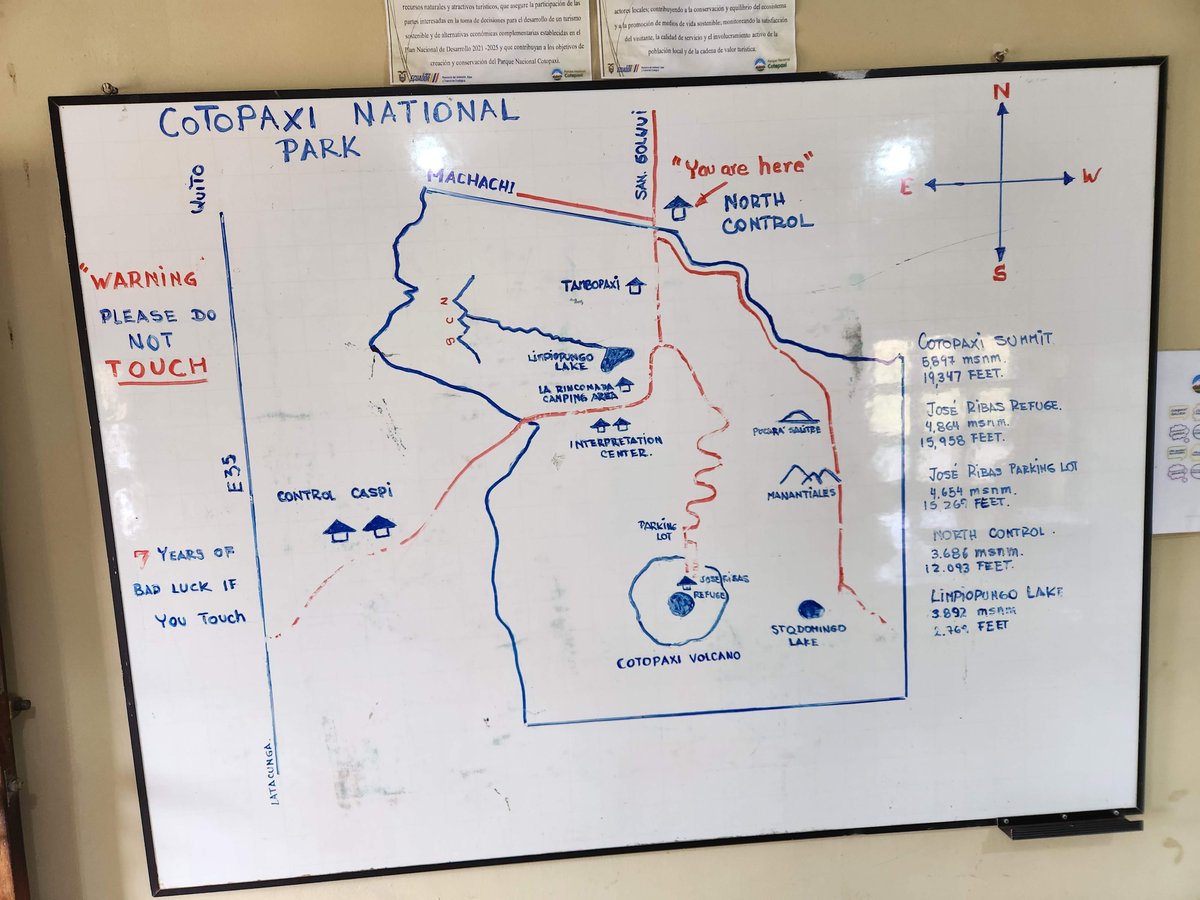 recursos naturales y atractivos turísticos, que asegure la participación de las
partes interesadas en la toma de decisiones para el desarrollo de un turismo
sostenible y de alternativas económicas complementarias establecidas en el
Plan Nacional de Desarrollo 2021 -2025 y que contribuyan a los objetivos de
creación y conservación del Parque Nacional Cotopaxi.
ECUADOR
Parque Nacional
Cotopaxi
actores locales; contribuyendo a la conservación y equilibrio del ecosistema
y a la promoción de medios de vida sostenible; monitoreando la satisfacción
del visitante, la calidad de servicio y el involucramiento activo de la
población local y de la cadena de valor turística.
Parque Nacional
Cotopaxi
COTOPAXI NATIONAL
PARK
QUITO
MACHACHI
SAN. GOLQUI
"You are here"
NORTH
CONTROL
N
E
W
S
"WARNING"
PLEASE DO
NOT
TOUCH
TAMBOPAXI
N
C
S
LIMPIOPUNGO
LAKE
LA RINCONADA
CAMPING AREA
INTERPRETATION
CENTER.
E35
CONTROL CASPI
MANANTIALES
PARKING
LOT
JOSE RIBAS
REFUGE
COTOPAXI VOLCANO
STODOMINGO
LAKE
7 YEARS OF
BAD LUCK IF
YOU TOUCH
LATACUNGA.
COTOPAXI SUMMIT
5,897 msnm.
19,347 FEET.
JOSÉ RIBAS REFUGE.
4,864 msnm.
15,958 FEET.
JOSÉ RIBAS PARKING LOT
4,654 msnm.
15,269 FEET.
NORTH CONTROL.
3.686 msnm.
12.093 FEET.
LIMPIOPUNGO LAKE
3.892 msnm
2.769 FEET